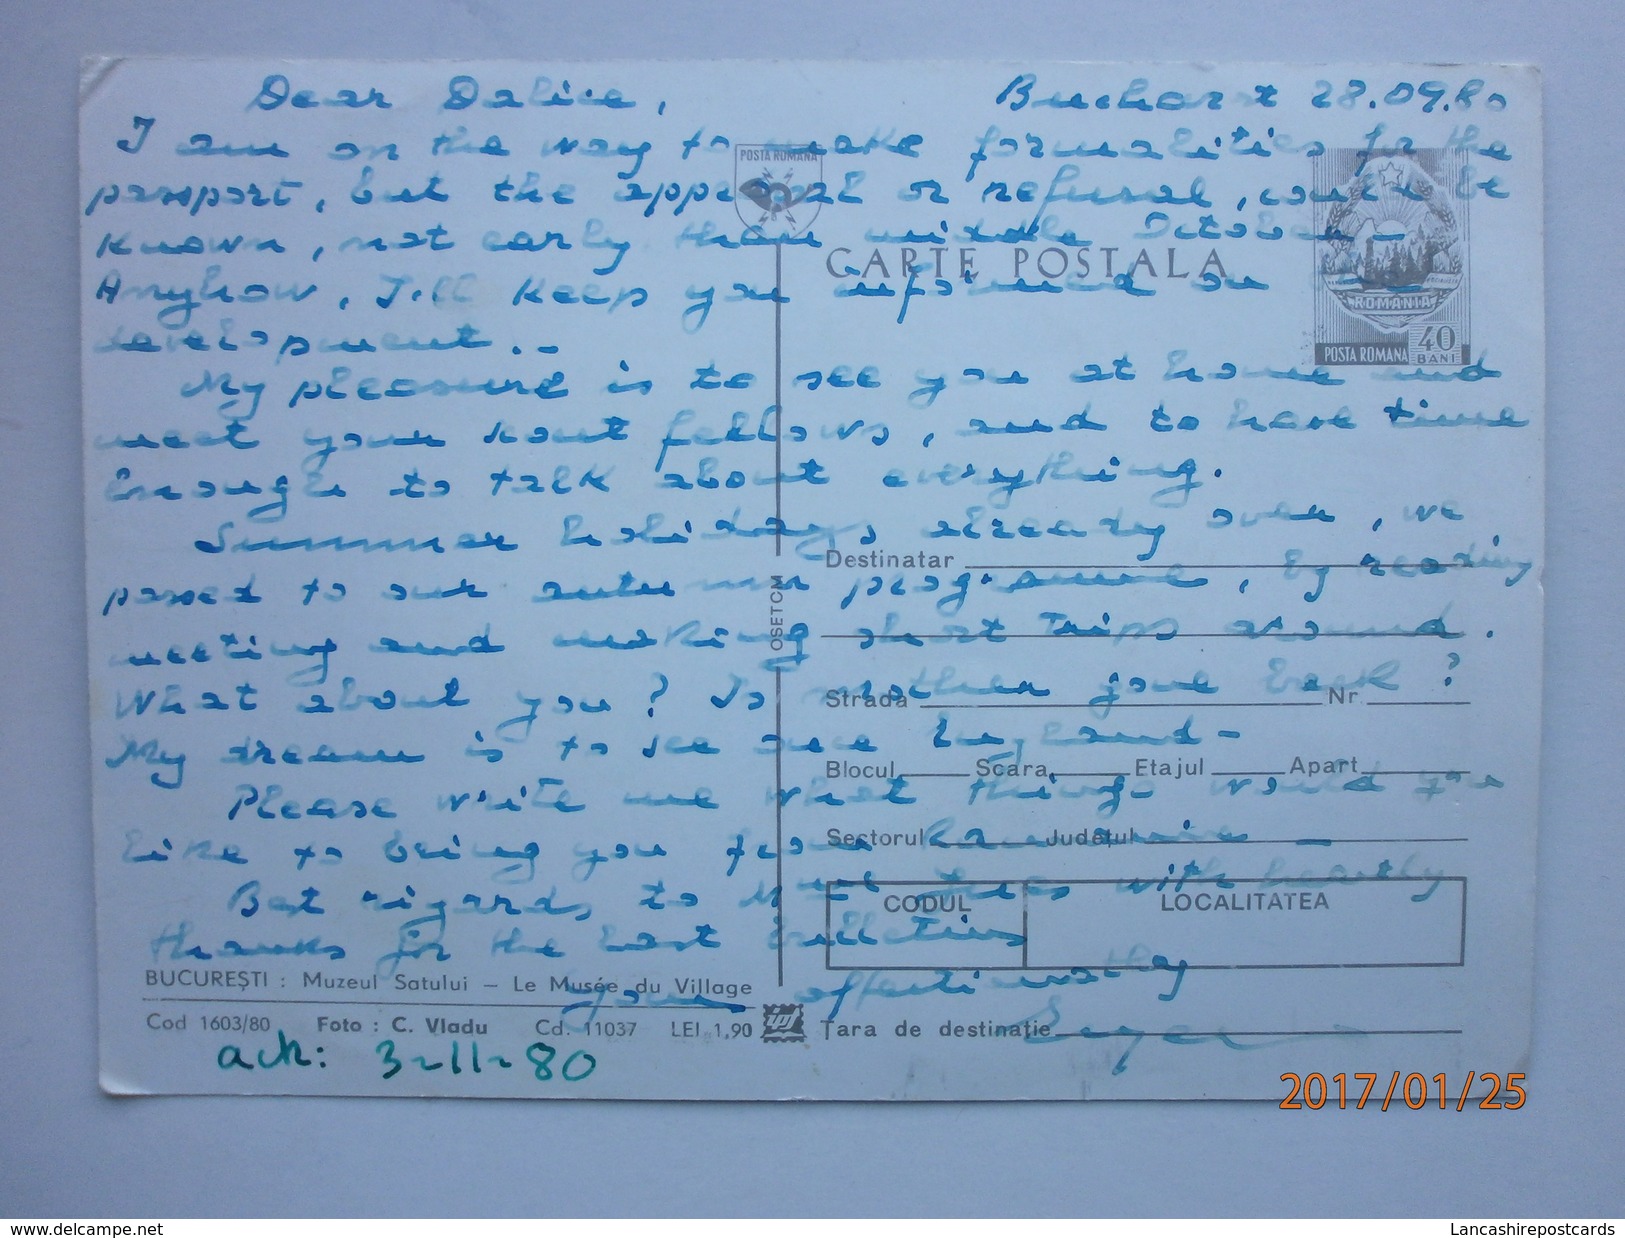 Dear Dalice,
Bucharest 28.09.80
I am on the way to make formalities for the
passport, but the appeal or refusal, could be
known, not early than middle October -
Anyhow, I'll keep you informed on
development. -
My pleasure is to see you at home and
meet your scout fellows, and to have time
Enough to talk about everything.
Summer holidays already over, we
passed to our autumn programme, by reading
meeting and making short trips around.
What about you? Is mother gone back?
My dream is to see once England -
Please write me what things would you
like to bring you from Roumanie -
Best regards to with hearthy
thanks for the last bulletins
your affectionathly
POSTA ROMANA
CARTE POSTALA
ROMANIA
POSTA ROMANA 40 BANI
OSETCM
Destinatar
Strada Nr.
Blocul Scara Etajul Apart.
Sectorul Judeţul
CODUL LOCALITATEA
Ţara de destinaţie
BUCUREŞTI : Muzeul Satului – Le Musée du Village
Cod 1603/80 Foto : C. Vladu Cd. 11037 LEI 1,90
ack: 3-11-80
2017/01/25
www.delcampe.net
Lancashirepostcards